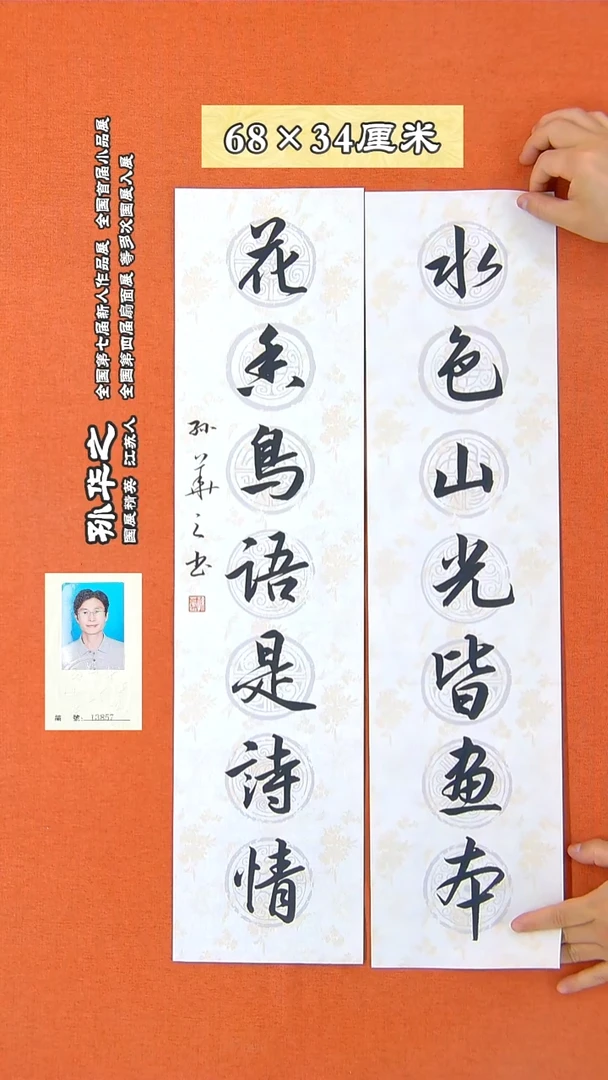 68×34厘米
水色山光皆画本
花香鳥语是詩情
孙華之书
全国第七届新人作品展 全国首届小品展
全国第四届扇面展 等多次国展入展
孙华之
国展精英 江苏人
編 號: 13857